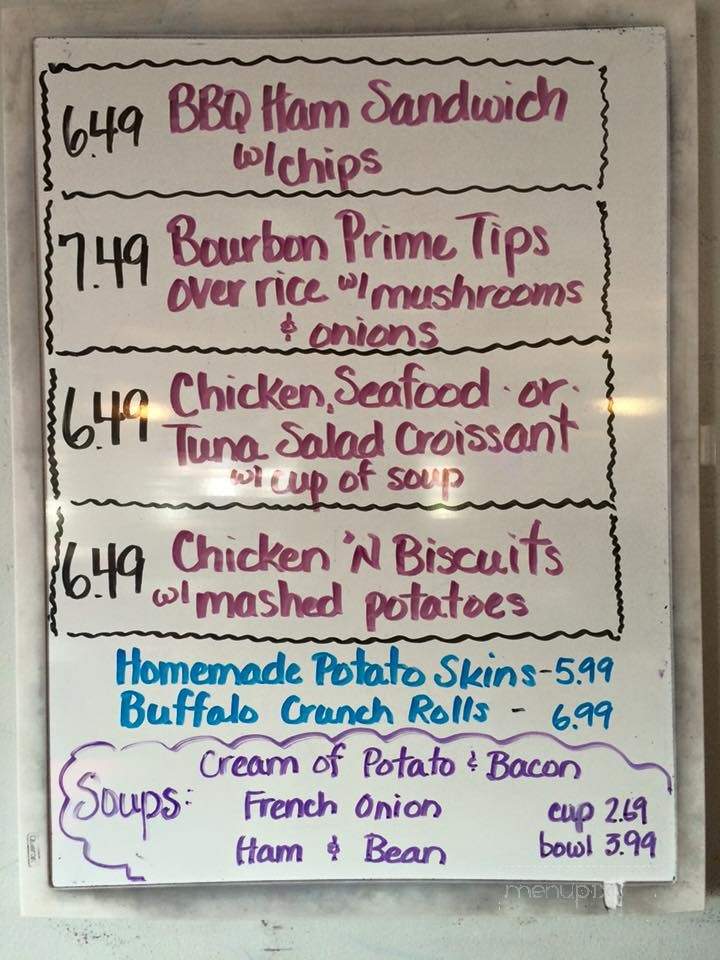 6.49 BBQ Ham Sandwich
w/chips
7.49 Bourbon Prime Tips
over rice w/ mushrooms
& onions
6.49 Chicken, Seafood or
Tuna Salad Croissant
w/ cup of soup
6.49 Chicken 'N Biscuits
w/ mashed potatoes
Homemade Potato Skins - 5.99
Buffalo Crunch Rolls - 6.99
Cream of Potato & Bacon
Soups: French Onion cup 2.69
Ham & Bean bowl 3.99